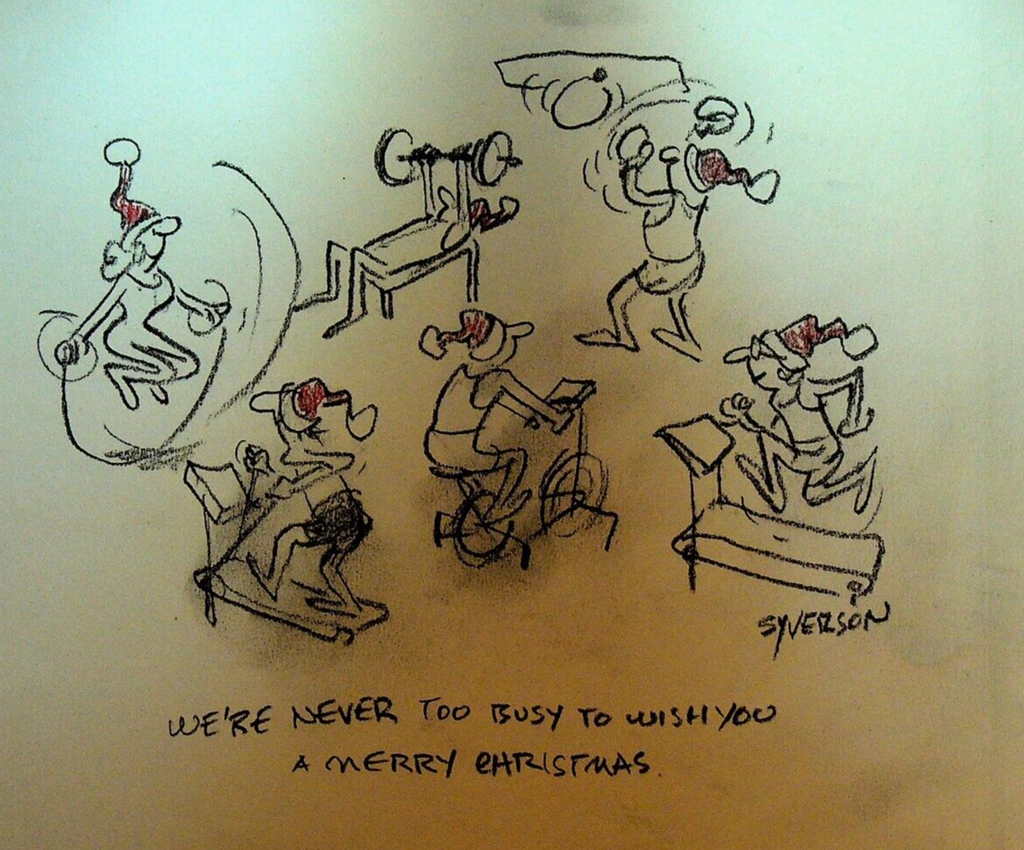 SYVERSON
WE'RE NEVER TOO BUSY TO WISH YOU
A MERRY CHRISTMAS.